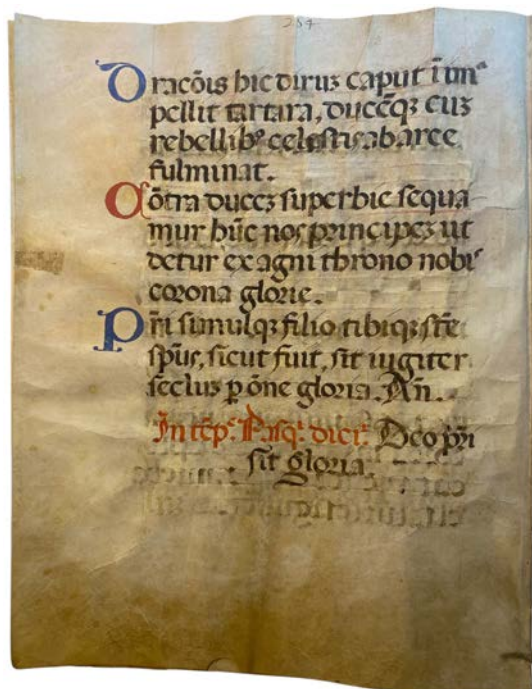 284
Dracōis hic diruz caput ī im
pellit tartara, ducēqz cuz
rebellibꝰ celesti ab arce
fulminat.
Cōtra ducez superbie sequa
mur hūc nos principez ut
detur ex agni throno nobiˢ
corona glorie.
Pr̄i simulqz filio tibiqz scē
sp̄us, sicut fuit, sit iugiter
seclus p̄ ōne gloria. Am̄.
In tēp. Pasq. dicr. Deo pr̄i
sit gloria.